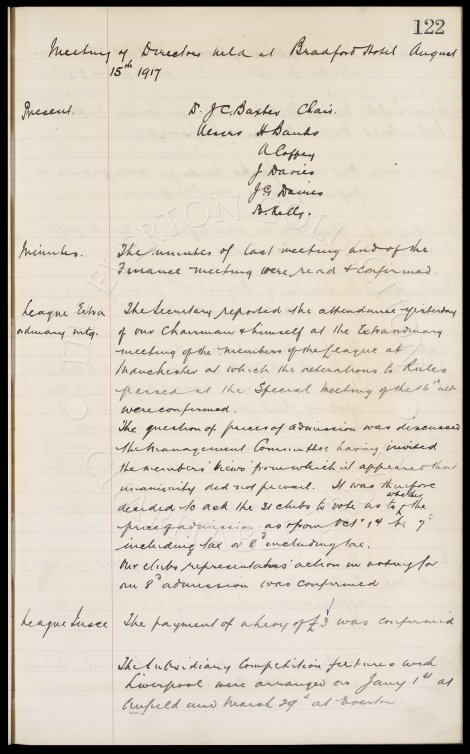 122
Meeting of Directors held at Bradford Hotel August
15th 1917
Present. Dr. J.C. Baxter Chair.
Messrs H Banks
A Coffey
J Davies
J.G. Davies
B. Kelly.
Minutes. The minutes of last meeting and of the
Finance meeting were read & confirmed.
League Extra The Secretary reported the attendance yesterday
ordinary mtg. of our Chairman & himself at the Extraordinary
meeting of the members of the League at
Manchester at which the alterations to Rules
passed at the Special Meeting of the ult
were confirmed.
The question of prices of admission was discussed
the Management Committee having invited
the members' views from which it appeared that
unanimity did not prevail. It was therefore
decided to ask the 21 clubs to vote as to whether the
price of admission as from Octr 1st be 7d
including tax or 8d including tax.
Our clubs representatives' action in voting for
an 8d admission was confirmed
League The payment of a levy of £3 was confirmed
The Subsidiary Competition fixtures with
Liverpool were arranged as Jany 1st at
Anfield and March 29th at Everton.
EVERTON COLLECTION